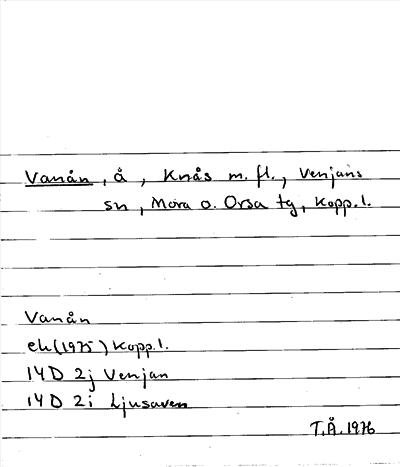 Vanån, å, Knås m. fl., Venjans
sn, Mora o. Orsa tg, Kopp. l.
Vanån
ek (1975) Kopp. l.
14D 2j Venjan
14D 2i Ljusaven
T.Å. 1976